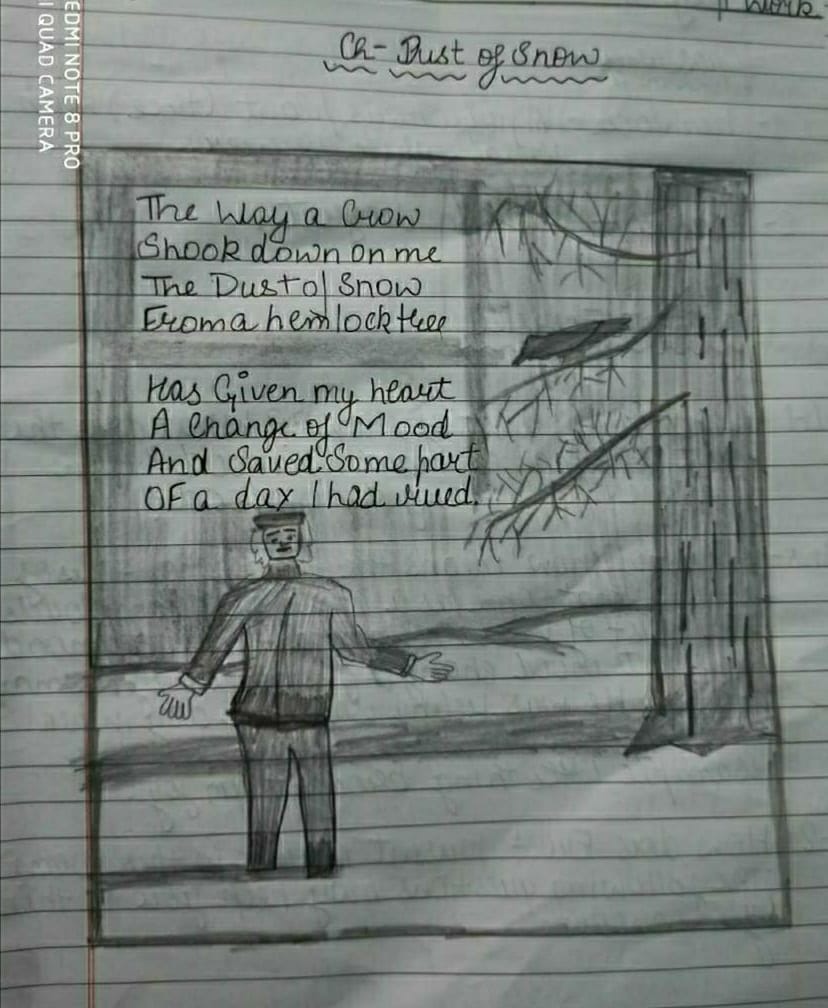 Work
Ch- Dust of Snow
The Way a Crow
Shook down on me
The Dust of Snow
From a hemlock tree
Has Given my heart
A Change of Mood
And Saved Some part
OF a day I had rued.
EDMI NOTE 8 PRO
I QUAD CAMERA